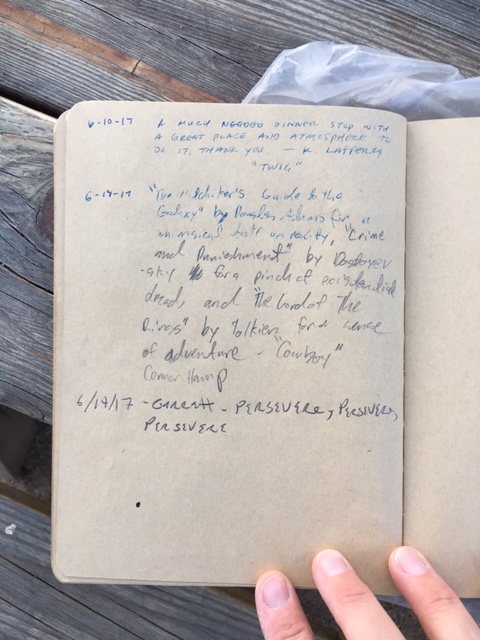 6-10-17 A MUCH NEEDED DINNER STOP WITH
A GREAT PLACE AND ATMOSPHERE TO
DO IT, THANK YOU. — K. LAFFERTY
"TWIG"
"The Hitchhiker's Guide to the
Galaxy" by Douglas Adams for a
whimsical look on reality, "Crime
and Punishment" by Dostoyev
-sky for a pinch of existential
dread, and "The Lord of The
Rings" by Tolkien for a sense
of adventure - "Cowboy"
Connor
6/14/17 - GARRETT - PERSEVERE, PERSEVERE,
PERSEVERE